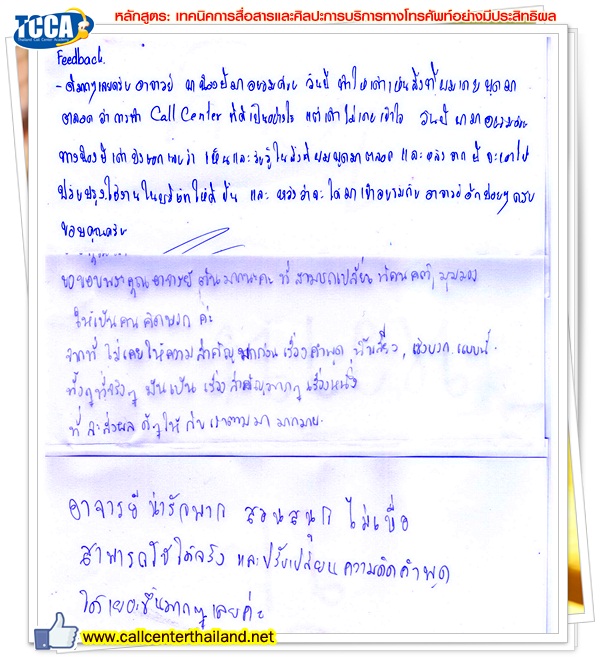 หลักสูตร: เทคนิคการสื่อสารและศิลปะการบริการทางโทรศัพท์อย่างมีประสิทธิผล
TCCA
Thailand Call Center Academy
Feedback.
- ดีมากๆเลยครับ อาจารย์ วันนี้ ทำให้เค้าเห็นสิ่งที่ผมเคยพูดมา
ตลอด ว่าการทำ Call Center ที่ดีเป็นอย่างไร แต่เค้าไม่เคยเข้าใจ วันนี้
เค้า บอกเลยว่า เห็นและรับรู้ในสิ่งที่ผมพูดมาตลอด และหลังจากนี้ จะเอาไป
ปรับปรุงใช้งานในบริษัทให้ดีขึ้น และ หวังว่าจะได้มาเข้าอบรมกับ อาจารย์อีกบ่อยๆครับ
ขอบคุณครับ
ขอขอบพระคุณอาจารย์ มากนะคะ ที่สามารถเปลี่ยน ทัศนคติ, มุมมอง
ให้เป็นคนคิดบวก ค่ะ
จากที่ ไม่เคยให้ความสำคัญมาก่อน เรื่องคำพูด, น้ำเสียง, เชิงบวก แบบนี้.
ทั้งๆที่จริงๆ มันเป็น เรื่องสำคัญมากๆ เรื่องหนึ่ง
ที่ จะส่งผล ดีๆให้ กับเราตามมา มากมาย.
อาจารย์น่ารักมาก สอนสนุก ไม่เบื่อ
สามารถใช้ได้จริง และปรับเปลี่ยนความคิดคำพูด
ได้เยอะขึ้นมากๆเลยค่ะ
www.callcenterthailand.net